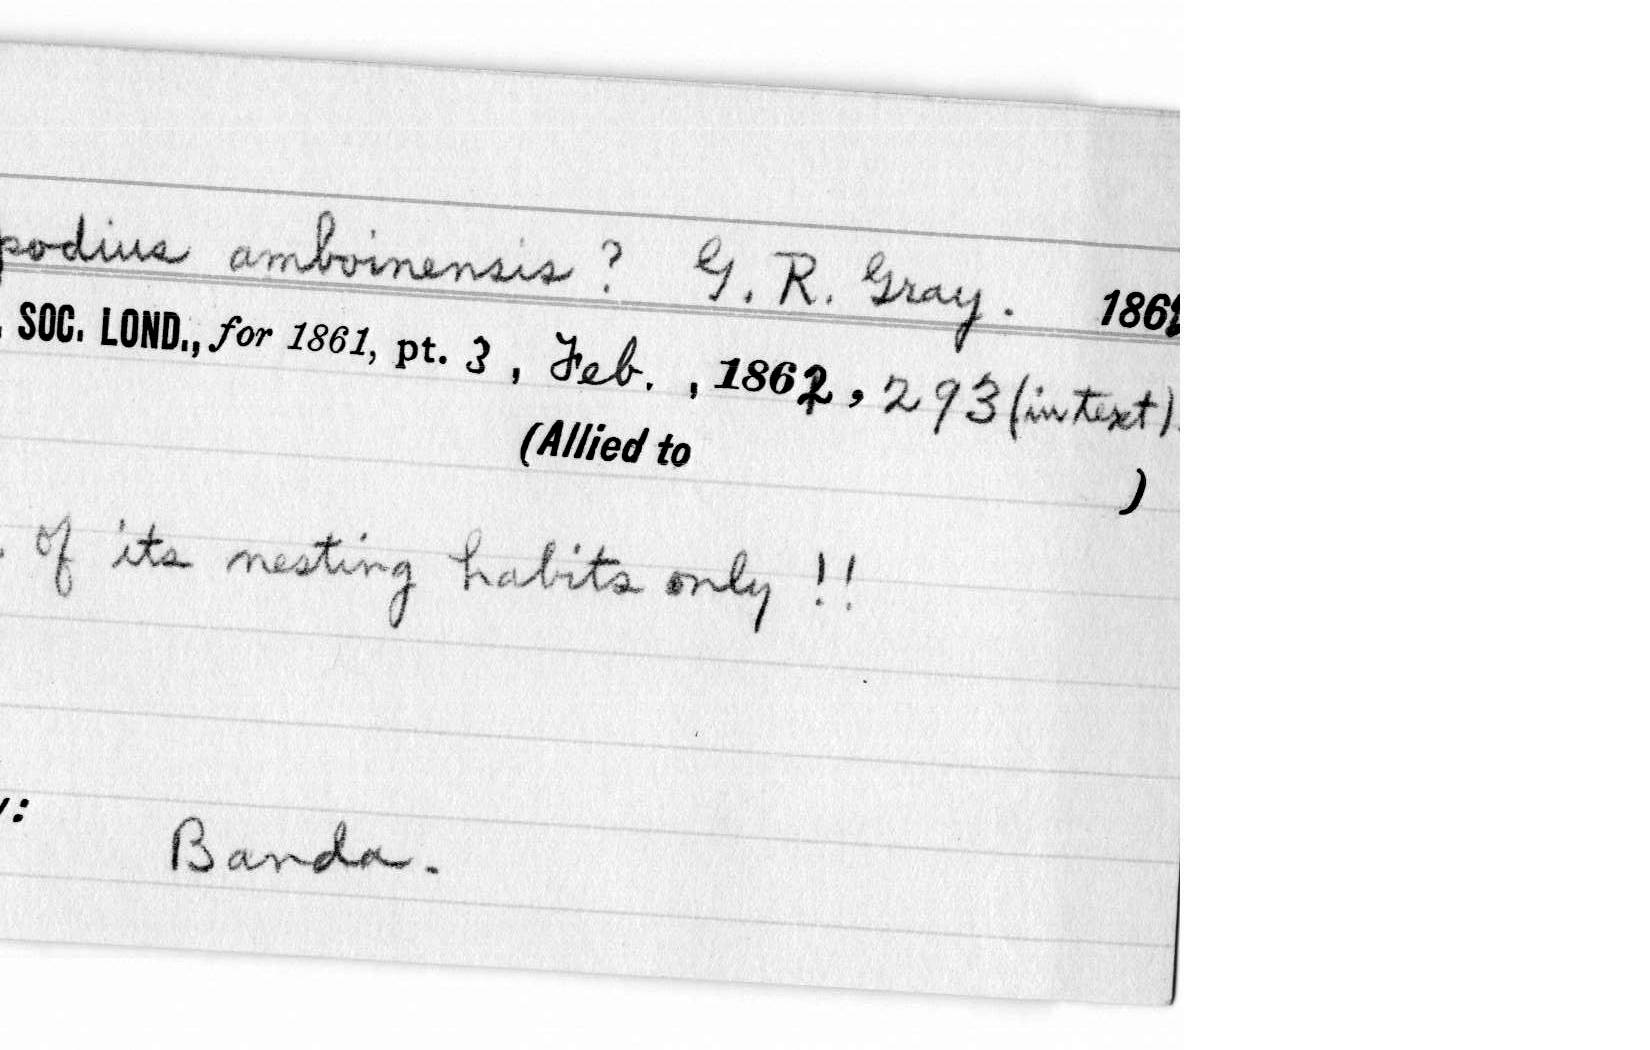 podius amboinensis? G. R. Gray. 1862
. SOC. LOND., for 1861, pt. 3, Feb., 1862, 293 (in text).
(Allied to )
. of its nesting habits only!!
y: Banda.